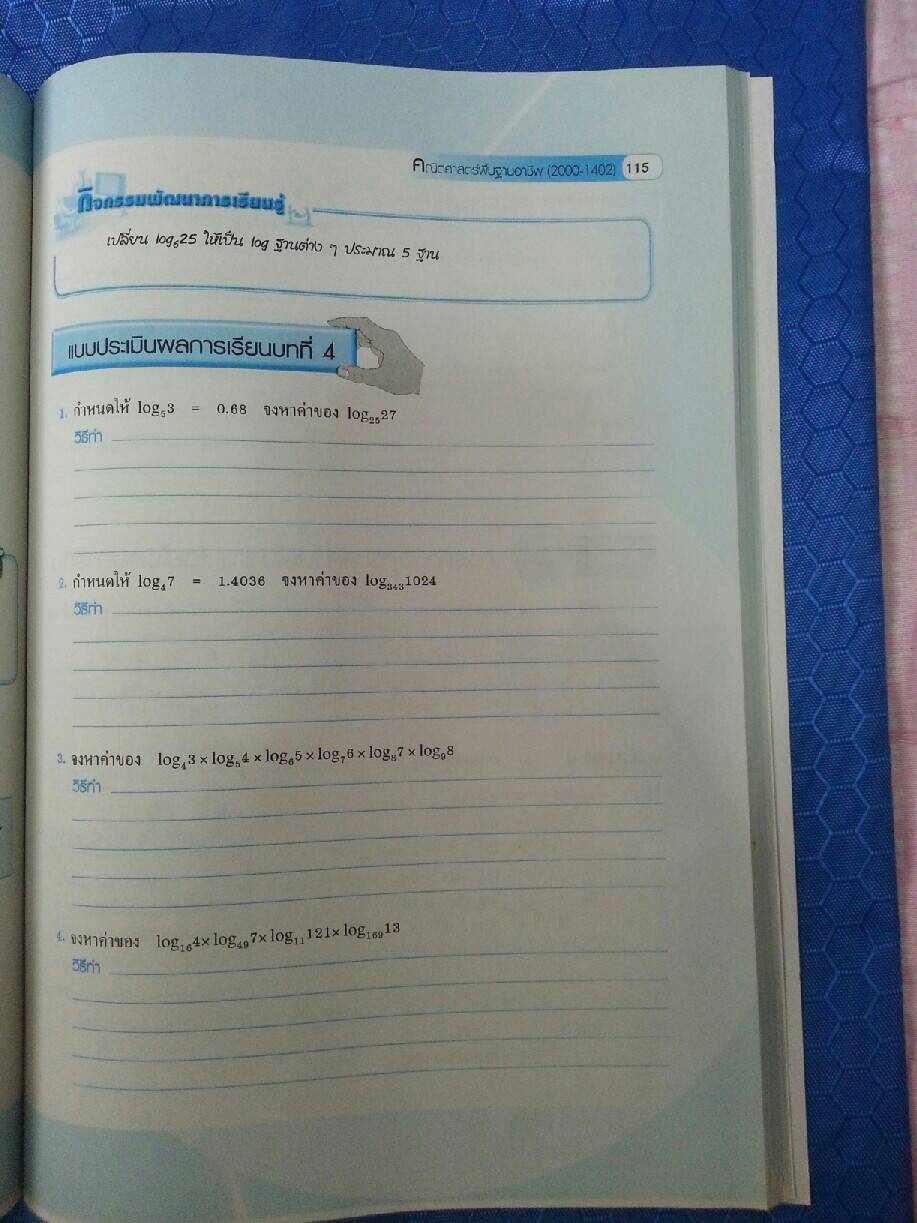 คณิตศาสตร์พื้นฐานอาชีพ (2000-1402) 115
กิจกรรมพัฒนาการเรียนรู้
เปลี่ยน log₅25 ให้เป็น log ฐานต่าง ๆ ประมาณ 5 ฐาน
แบบประเมินผลการเรียนบทที่ 4
1. กำหนดให้ log₅3 = 0.68 จงหาค่าของ log₂₅27
วิธีทำ
2. กำหนดให้ log₄7 = 1.4036 จงหาค่าของ log₃₄₃1024
วิธีทำ
3. จงหาค่าของ log₄3 × log₅4 × log₆5 × log₇6 × log₈7 × log₉8
วิธีทำ
4. จงหาค่าของ log₁₆4 × log₄₉7 × log₁₁121 × log₁₆₉13
วิธีทำ